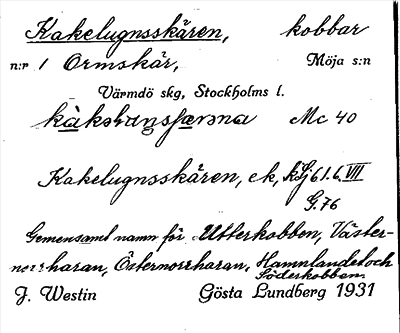 Kakelugnsskären, kobbar
n:r 1 Ormskär, Möja s:n
Värmdö skg, Stockholms l.
Mc 40
Kakelugnsskären, ek, kSj 61.6. VII
G.76
Gemensamt namn för Utterkobben, Väster-
norrharan, Östernorrharan, Hamnlandet och
Söderkobben
J. Westin Gösta Lundberg 1931